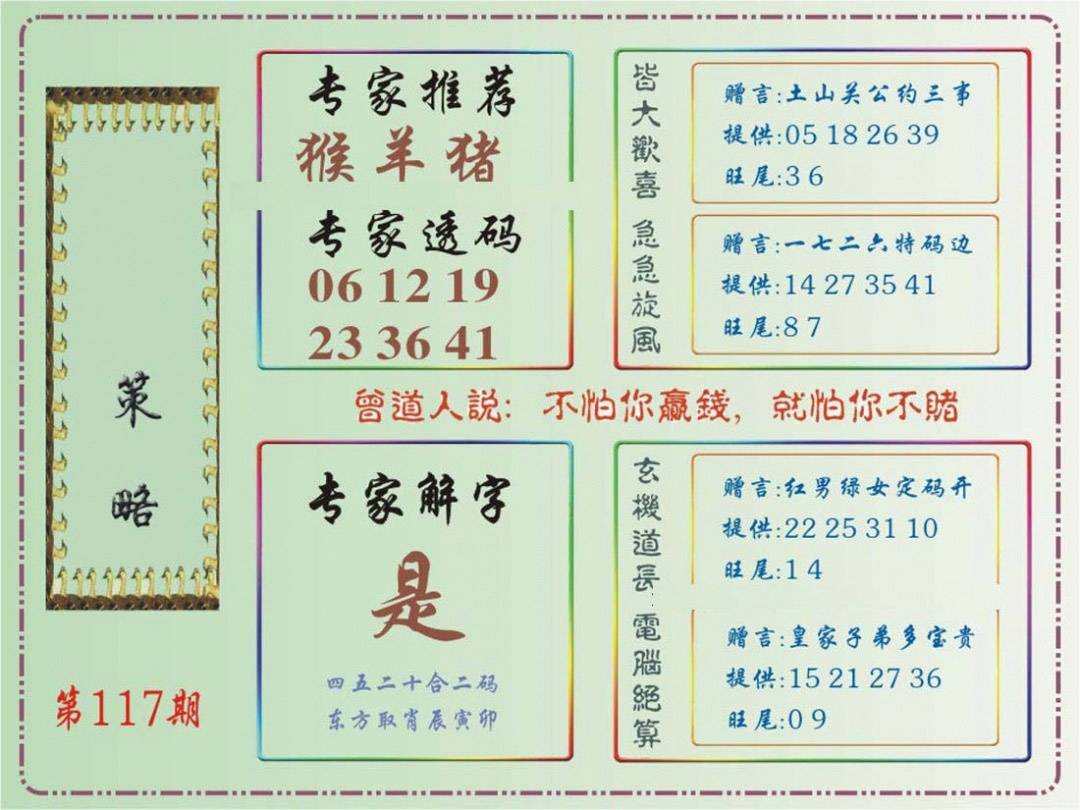 策
略
第117期
专家推荐
猴羊猪
专家透码
06 12 19
23 36 41
皆大歡喜
赠言:土山关公约三事
提供:05 18 26 39
旺尾:3 6
急急旋風
赠言:一七二六特码边
提供:14 27 35 41
旺尾:8 7
曾道人説: 不怕你贏錢, 就怕你不賭
专家解字
是
四五二十合二码
东方取肖辰寅卯
玄機道長
赠言:红男绿女定码开
提供:22 25 31 10
旺尾:1 4
電腦絕算
赠言:皇家子弟多宝贵
提供:15 21 27 36
旺尾:0 9